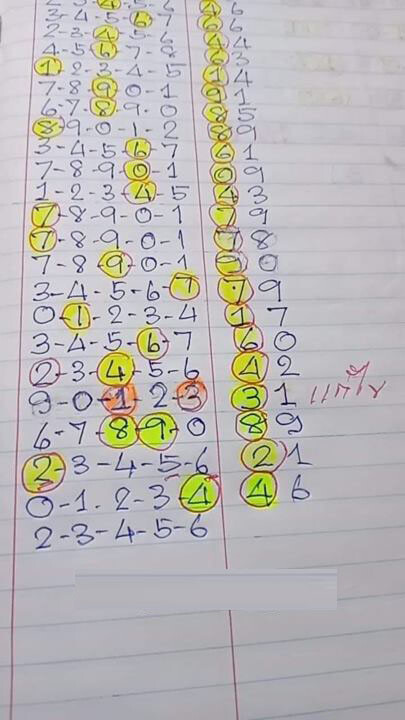 2-3-4-5-6 46
3-4-5-6-7 66
2-3-4-5-6 44
4-5-6-7-8 63
1-2-3-4-5 14
7-8-9-0-1 91
6-7-8-9-0 85
8-9-0-1-2 89
3-4-5-6-7 61
7-8-9-0-1 09
1-2-3-4-5 43
7-8-9-0-1 79
7-8-9-0-1 78
7-8-9-0-1 90
3-4-5-6-7 79
0-1-2-3-4 17
3-4-5-6-7 60
2-3-4-5-6 42
9-0-1-2-3 31
6-7-8-9-0 89
2-3-4-5-6 21
0-1-2-3-4 46
2-3-4-5-6